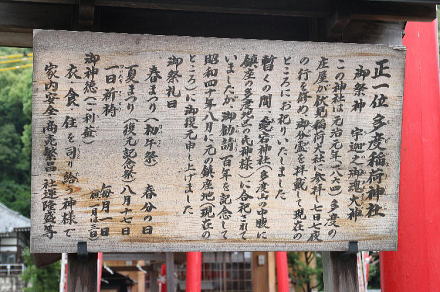 正一位 多度稲荷神社
御祭神 宇迦之御魂大神
この神社は元治元年(一八六四)多度の
庄屋が伏見稲荷大社に参拝し七日七夜
の行を修め御分霊を拝戴して現在の
ところにお祀りいたしました
暫くの間、愛宕神社(多度山の中腹に
鎮座の多度地区の氏神様)に合祀されて
いましたが御勧請百年を記念して
昭和四十年八月に元の鎮座地(現在の
ところ)に御復元申し上げました
御祭礼日
春まつり(初午祭) 春分の日
夏まつり(復元記念祭) 八月十七日
一日祈祷 毎月一日
但一月三日
御神徳(ご利益)
衣、食、住を司り給う神様で
家内安全 商売繁昌 社運隆盛等